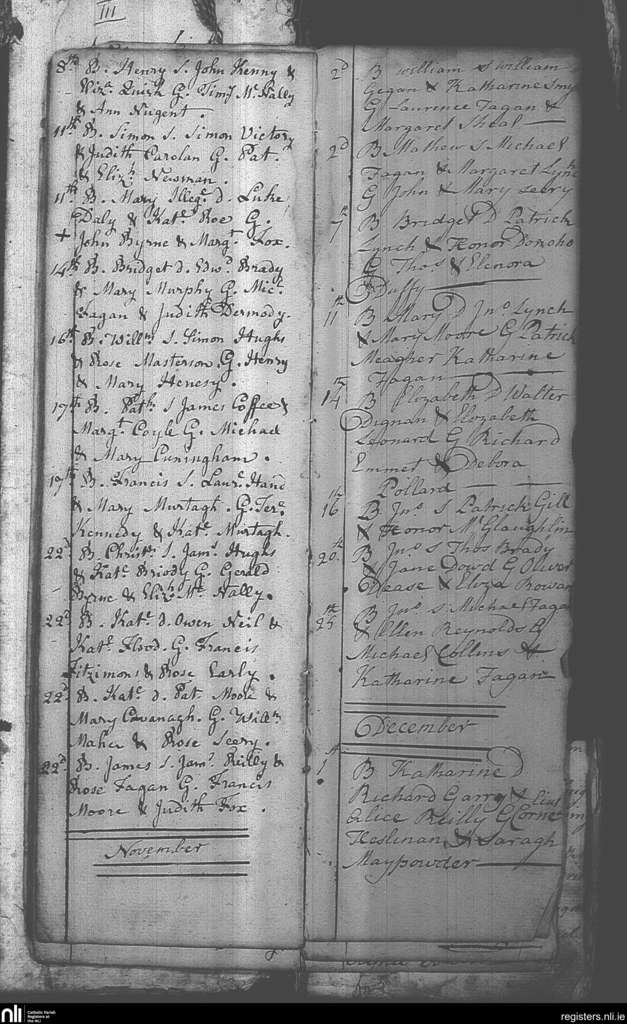 III
8th B. Henry S. John Kenny &
Eliz. Quirk G. Timy McNally
& Ann Nugent.
11th B. Simon S. Simon Victory
& Judith Carolan G. Pat.
& Elizh Newman.
11th B. Mary Illegt d. Luke
Daly & Kate Roe G.
+ John Byrne & Margt Fox.
14th B. Bridget d. Edwd Brady
& Mary Murphy G. Mic.
Fagan & Judith Dermody.
16th B. Willm S. Simon Hughs
& Rose Masterson. G. Henry
& Mary Henesy.
17th B. Patk S James Coffee &
Margt Coyle G. Michael
& Mary Cuningham.
19th B. Francis S. Laure Hand
& Mary Murtagh. G. Tere
Kennedy & Kate Murtagh.
22d B. Christr S. Jams Hughs
& Kate Briody G. Gerald
Byrne & Elizh McNally.
22d B. Kate d. Owen Neil &
Kate Flood. G. Francis
Fitzimons & Rose Early.
22d B. Kate d. Pat. Moore &
Mary Cavanagh. G. Willm
Maher & Rose Seery.
22d B. James S. Jams Reilly &
Rose Fagan G. Francis
Moore & Judith Fox.
November
2d B William S William
Gegan & Katharine Smy
G Laurence Fagan &
Margaret Sheal
2d B Mathew S Michael
Fagan & Margaret Lynch
G John & Mary Seery
7th B Bridget D Patrick
Lynch & Honor Donoho
G Thos & Elenora
Duffy
11th B Mary D Jno Lynch
& Mary Moore G Patrick
Meagher Katharine
Fagan
14th B Elozabeth D Walter
Dignan & Elozabeth
Leonard G Richard
Emmet & Debora
Pollard
16th B Jno S Patrick Gill
& Honor McGlaughlin
20th B Jno S Thos Brady
& Jane Dowd G Oliver
Dease & Eliza Rowan
25th B Jno S Michael Fagan
& Ellen Reynolds G
Michael Collins &
Katharine Fagan
December
1st B Katharine D
Richard Garry &
Alice Reilly G Corne
Heslinan & Saragh
Maypowder
nli
Catholic Parish
Registers at
the NLI
registers.nli.ie